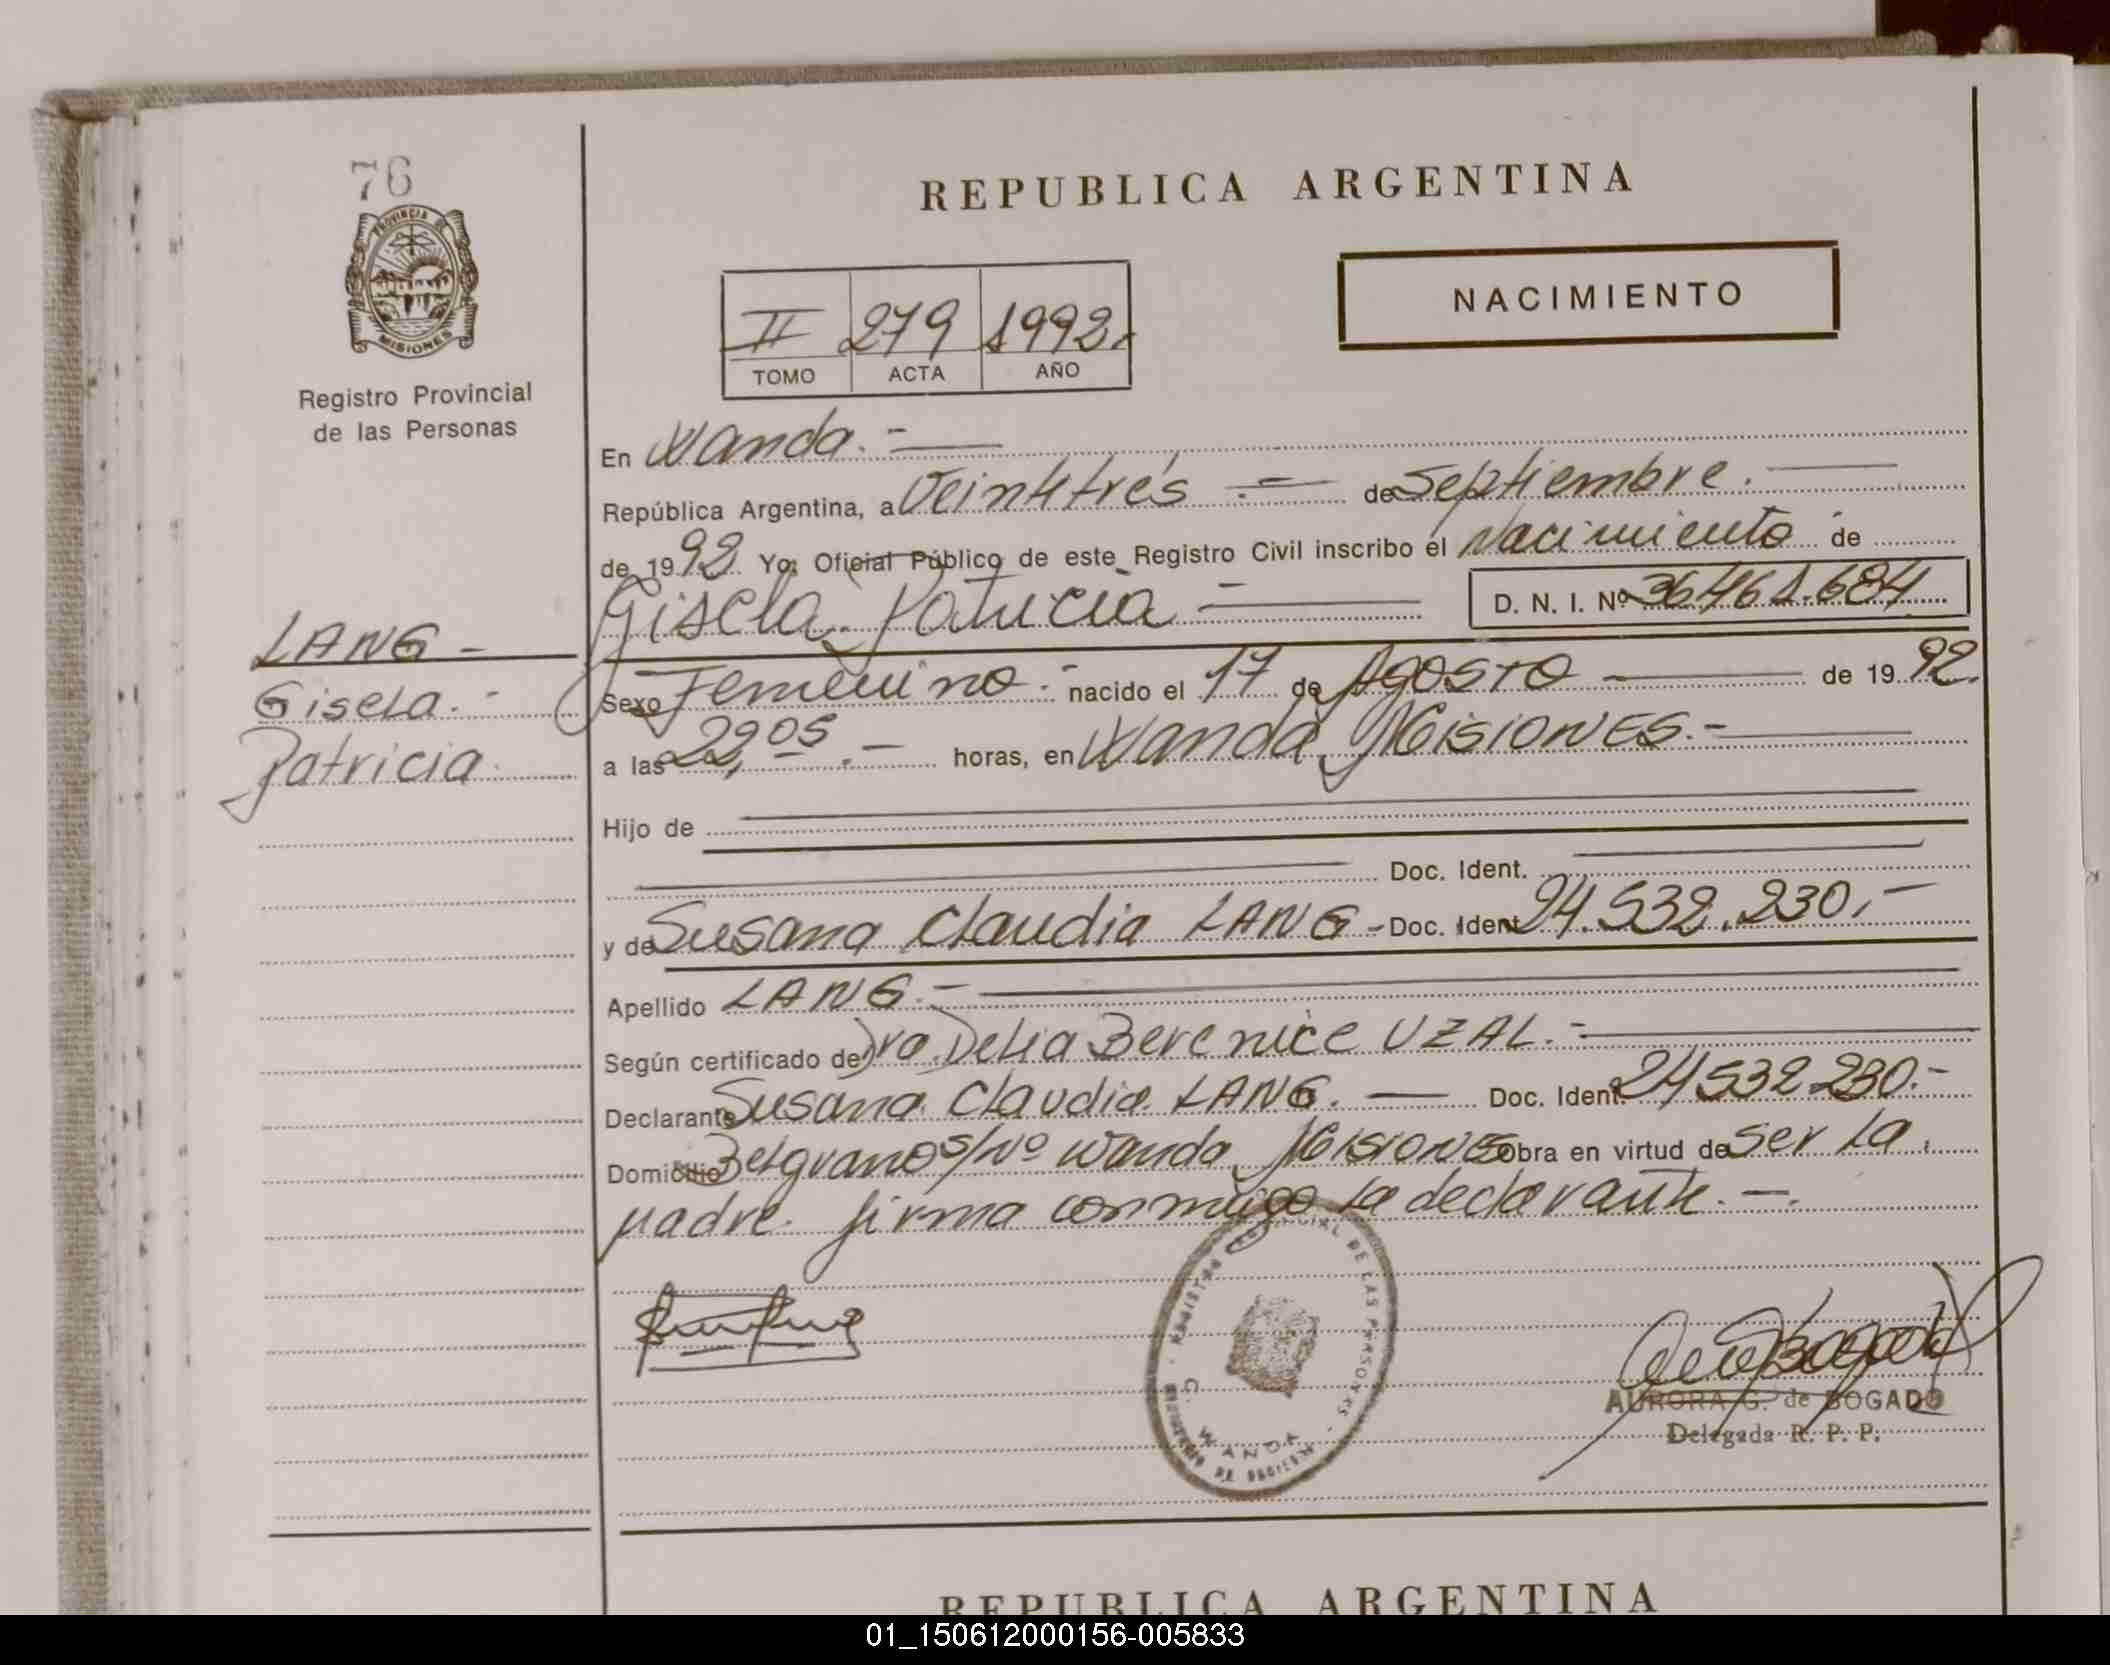 76
PROVINCIA DE
MISIONES
Registro Provincial
de las Personas
REPUBLICA ARGENTINA
NACIMIENTO
II 279 1992.
TOMO ACTA AÑO
En Wanda.-
República Argentina, a Veintitrés .- de Septiembre.
de 1992. Yo, Oficial Público de este Registro Civil inscribo el Nacimiento de
Gisela Patricia - D. N. I. Nº 36.461.684
LANG -
Gisela.-
Patricia
Sexo Femenino.- nacido el 17 de Agosto de 1992.
a las 22,05.- horas, en Wanda, MISIONES.-
Hijo de
Doc. Ident.
y de Susana Claudia LANG - Doc. Ident 24.532.230,-
Apellido LANG.-
Según certificado de Dra. Delia Berenice UZAL.-
Declarante Susana Claudia LANG. Doc. Ident. 24.532.230.-
Domicilio Belgrano s/Nº Wanda, MISIONES obra en virtud de ser la
madre. firma conmigo la declarante.-.
REGISTRO PROVINCIAL DE LAS PERSONAS
WANDA
AURORA G. de BOGADO
Delegada R. P. P.
REPUBLICA ARGENTINA
01_150612000156-005833